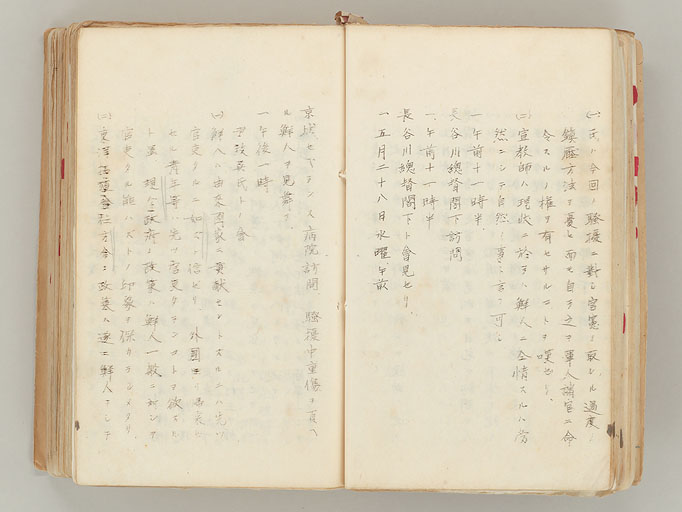 (一)氏ハ今回ノ騒擾ニ對シ官憲ノ取レル過度ノ
鎮壓方法ヲ憂ヒ而モ自ラ之ヲ軍人諸官ニ命
令スルノ權ヲ有セサルコトヲ嘆セリ
(二)宣教師ハ現状ニ於テハ鮮人ニ全情スルハ當
然ニシテ自然ノ事ト言フ可シ
一、午前十一時半
長谷川總督閣下訪問
一、午前十一時半
長谷川總督閣下ト會見セリ
一五月二十八日水曜午前
京城セブランス病院訪問 騒擾中重傷ヲ負ヘ
ル鮮人ヲ見舞フ
一午後一時
尹致昊氏ト會
(一)鮮人ハ由来國家ニ貢献セントスルニハ先ツ
官吏タルニ如クハ 信ゼリ 外國ヨリ
セル青年等ハ先ツ官吏タランコトヲ欲スル
ト虽 現今政府ノ政策ハ鮮人一般ニ対シテ
官吏タル能ハズトノ印象ヲ
(二)東洋拓殖會社ノ方今ノ政策ハ逐ニ鮮人ヲシテ